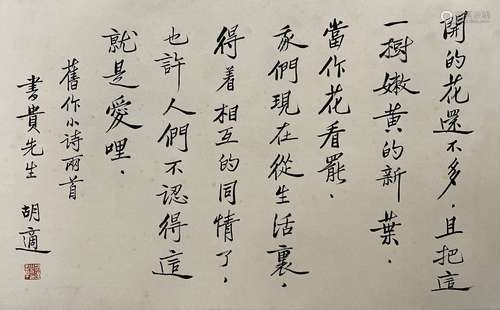 開的花還不多．且把這
一樹嫩黃的新葉．
當作花看罷．
我們現在從生活裏．
得着相互的同情了．
也許人們不認得這
就是愛哩．
舊作小詩兩首
書貴先生 胡適